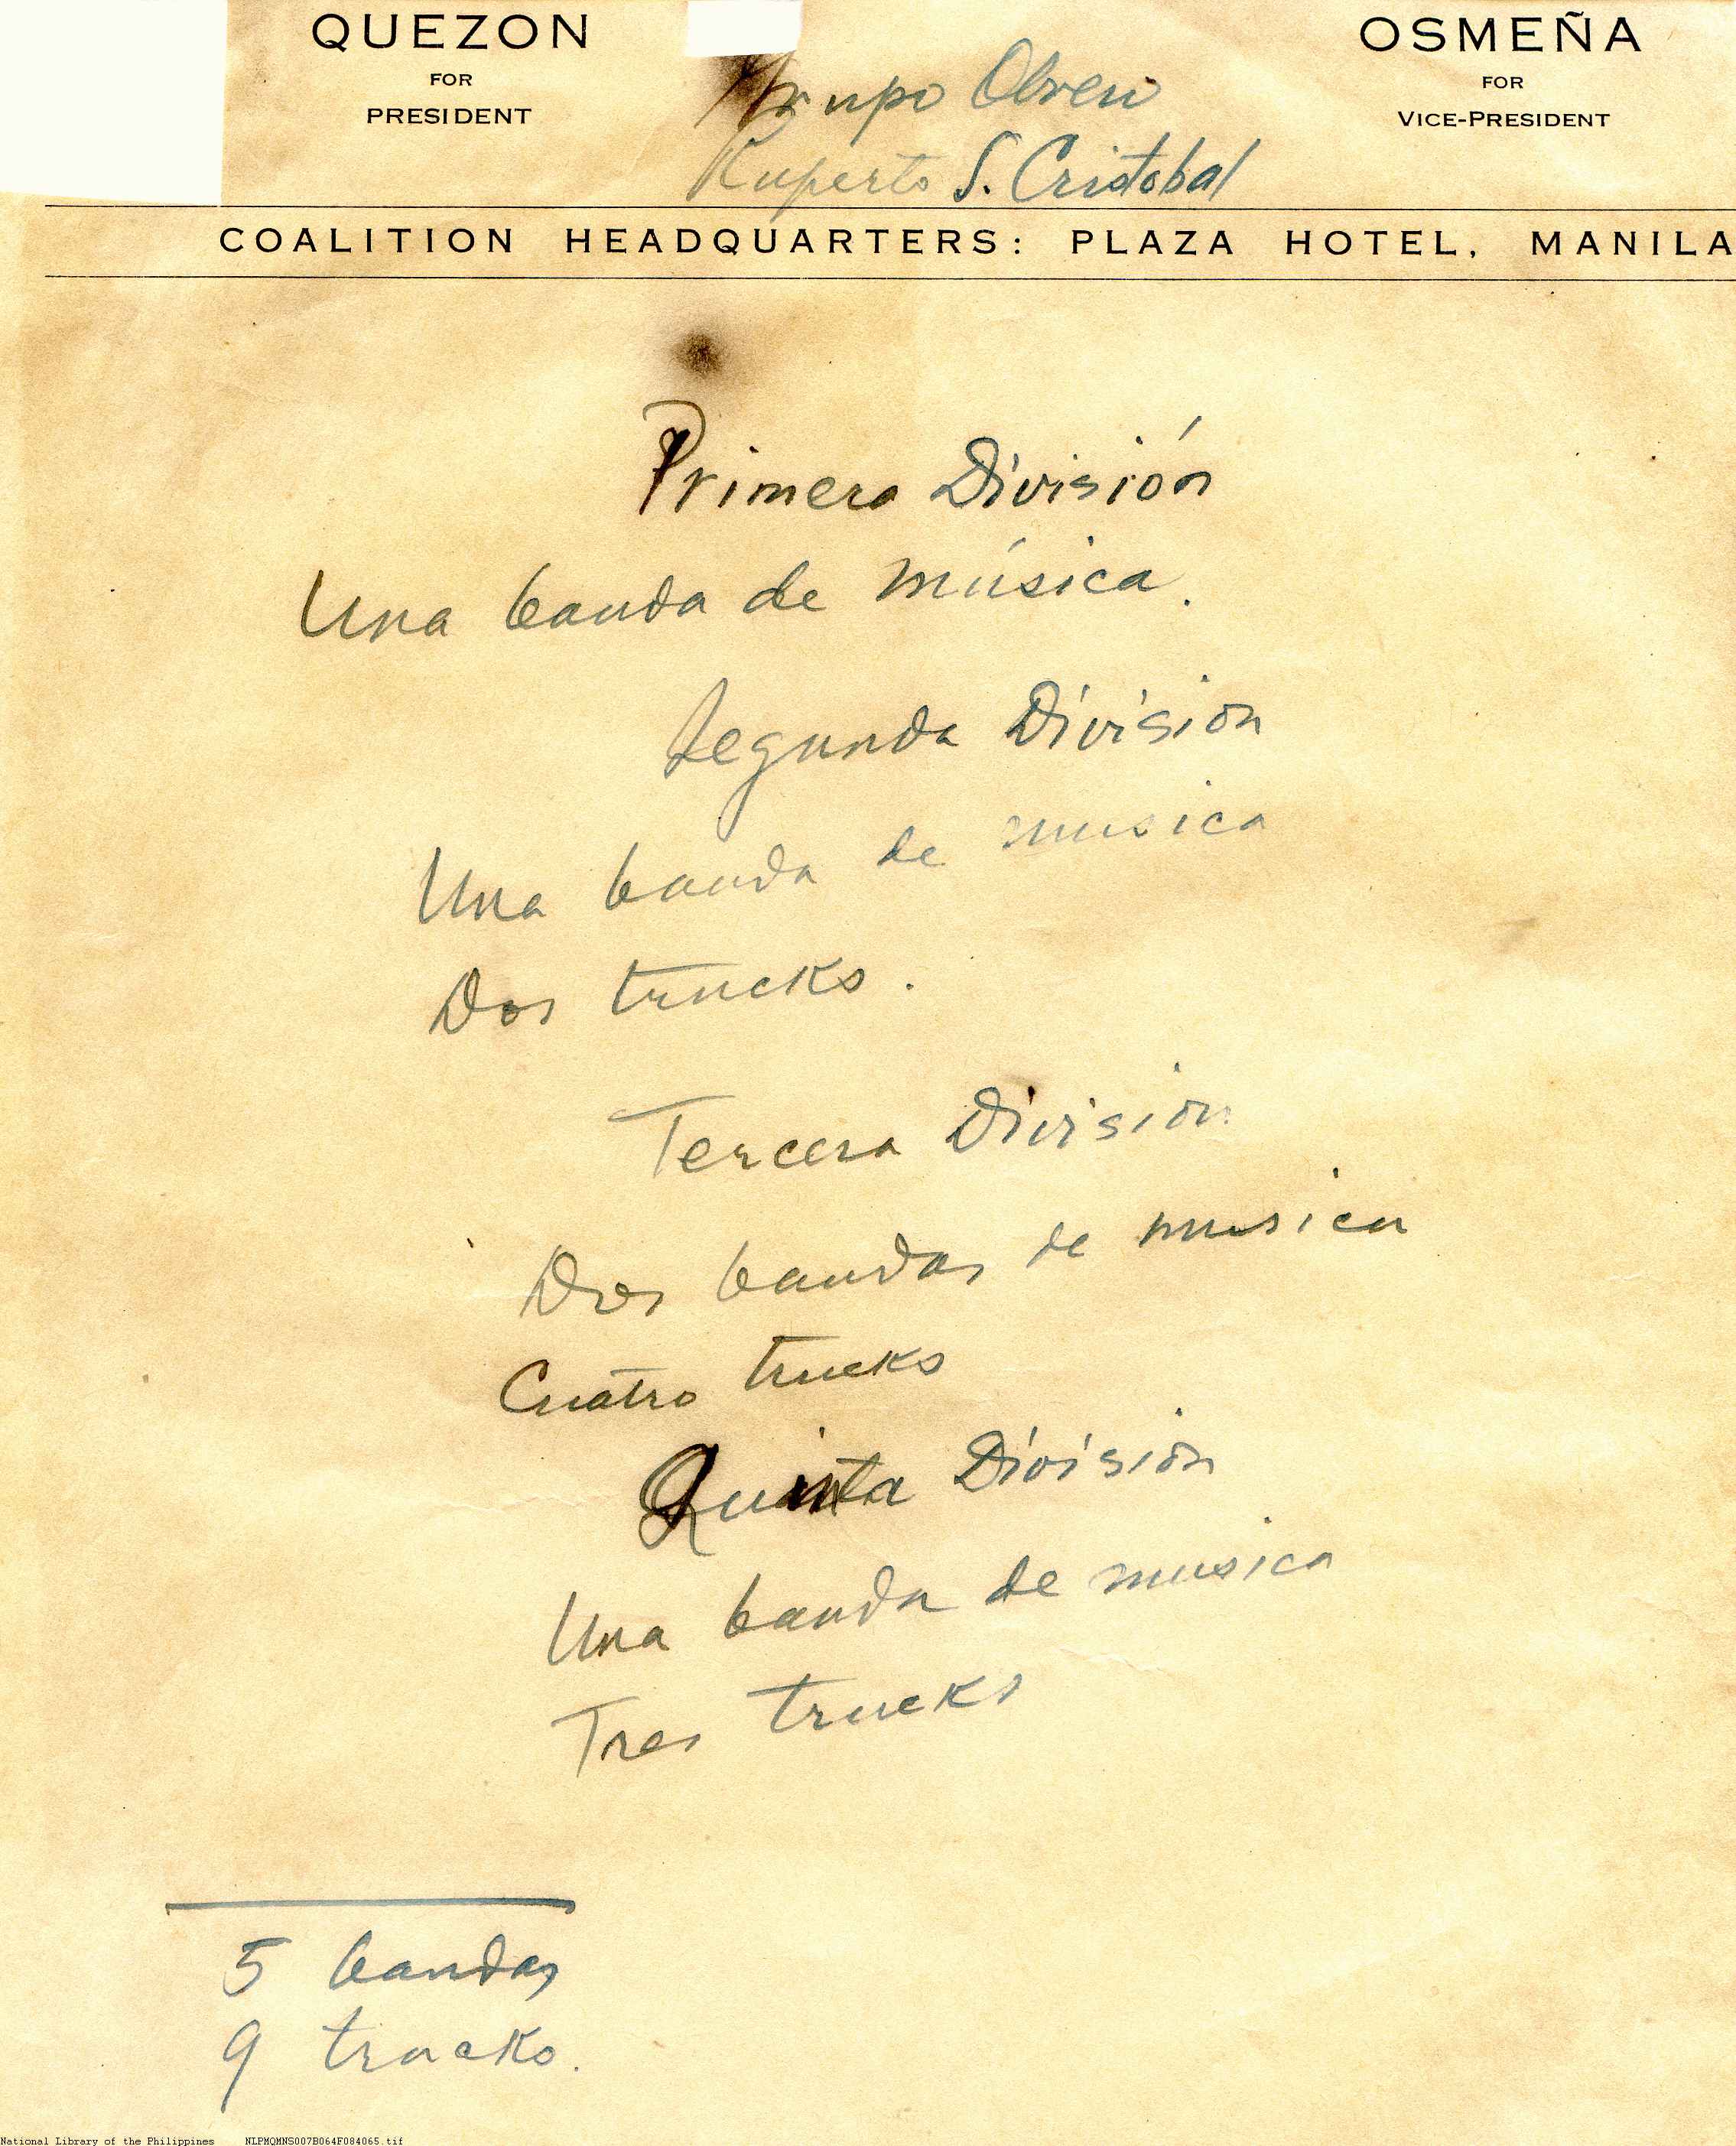 QUEZON
FOR
PRESIDENT
OSMEÑA
FOR
VICE-PRESIDENT
Grupo Obrero
Ruperto S. Cristobal
COALITION HEADQUARTERS: PLAZA HOTEL, MANILA
Primera División
Una banda de música.
Segunda Division
Una banda de musica
Dos trucks.
Tercera Division
Dos bandas de musica
Cuatro trucks
Quinta Division
Una banda de musica
Tres trucks
5 bandas
9 trucks.
National Library of the Philippines NLPMQMNS007B064F084065.tif